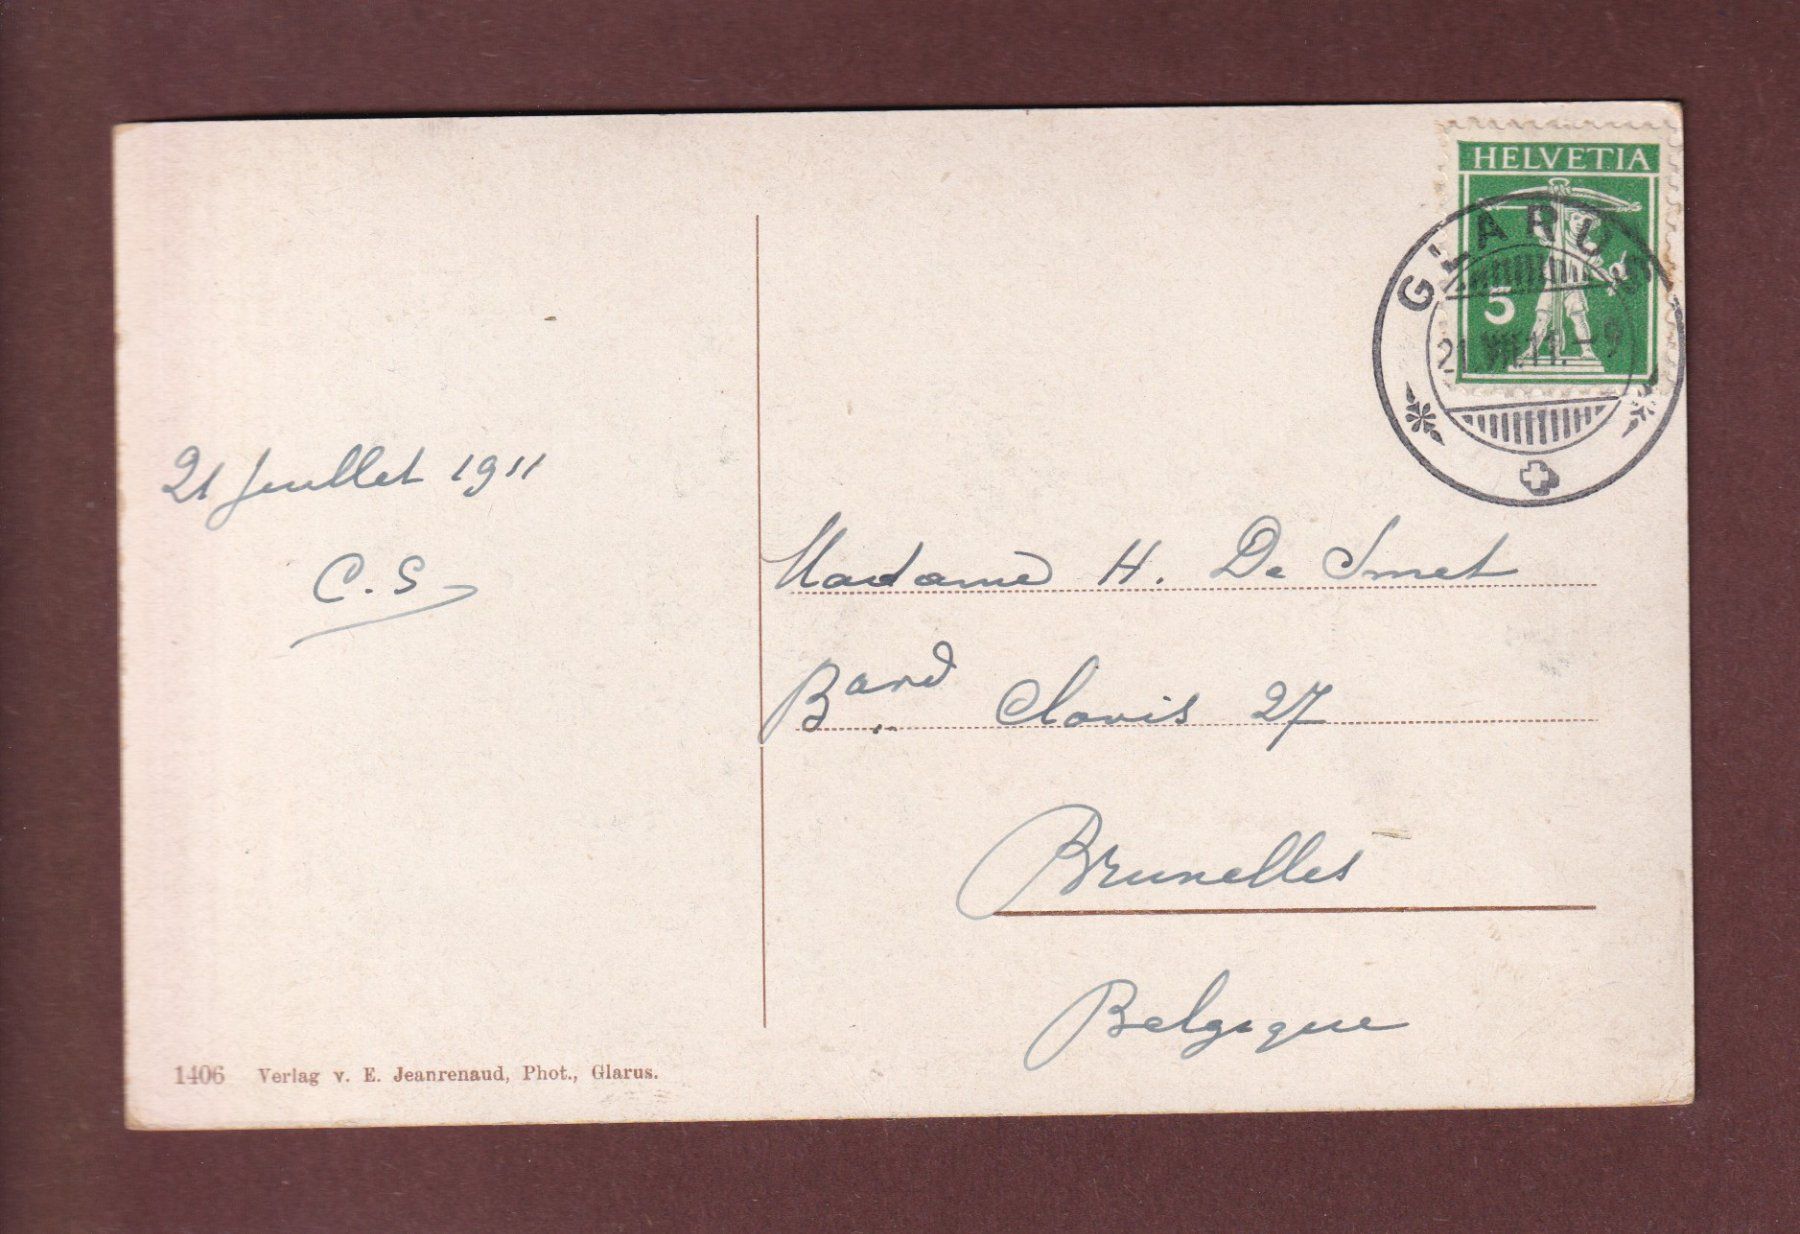 HELVETIA
5
GLARUS
21.VII.11.-9
21 juillet 1911
C.S
Madame H. De Smet
Bard Clovis 27
Bruxelles
Belgique
1406 Verlag v. E. Jeanrenaud, Phot., Glarus.